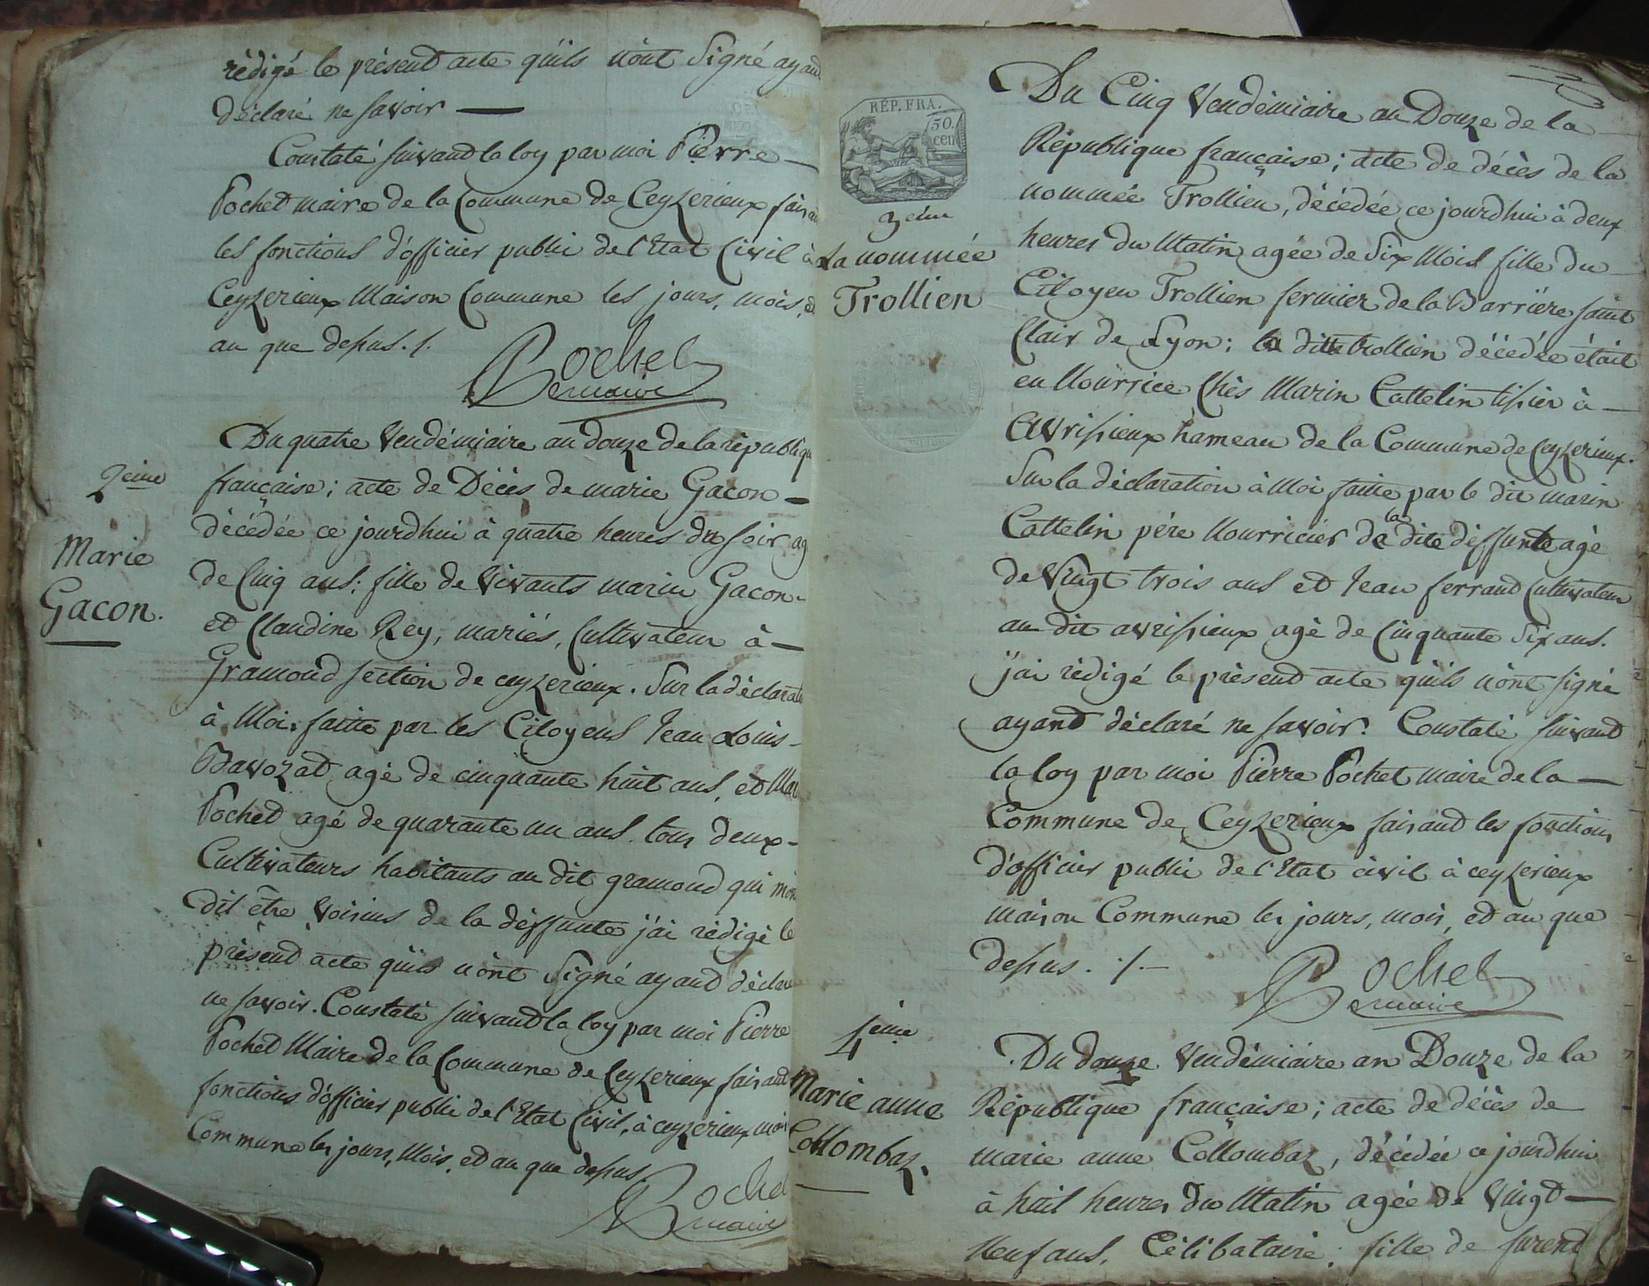 rédigé le présent acte qu'ils n'ont Signé ayant
déclaré ne savoir —
Constaté suivant la loy par moi Pierre —
Pochet maire de la Commune de Ceyzerieux fais
les fonctions d'officier public de l'Etat Civil à
Ceyzerieux Maison Commune les jours, mois, et
an que dessus ./.
Pochet
maire
2eme
Marie
Gacon.
Du quatre Vendémiaire an douze de la républiqu
française; acte de Décès de marie Gacon —
décédée ce jourdhui à quatre heures du soir ag
de Cinq ans; fille de vivants marin Gacon
et Claudine Rey, mariés, Cultivateur à —
Gramond section de ceyzerieux. Sur la déclarat
à Moi faitte par les Citoyens Jean Louis
Bavozat agé de cinquante huit ans, et Mar
Pochet agé de quarante un ans tous deux
Cultivateurs habitants au dit gramond qui mon
dit être Voisins de la déffunte j'ai rédigé le
présent acte qu'ils n'ont Signé ayant déclaré
ne savoir. Constaté suivant la loy par moi Pierre
Pochet Maire de la Commune de Ceyzerieux faisant
fonctions d'officier public de l'Etat Civil, à ceyzerieux mais
Commune les jours, Mois, et an que dessus.
Pochet
maire
RÉP. FRA.
50.
cen
3eme
La nommée
Trollien
Du Cinq Vendémiaire an Douze de la
République française; acte de décès de la
nommée Trollien, décédée ce jourdhui à deux
heures du Matin agée de Six Mois fille du
Citoyen Trollien fermier de la Barrière saint
Clair de Lyon; la ditte trollien décédée était
en Nourrice Chès Marin Cattelin tissier à —
Avrissieux hameau de la Commune de Ceyzerieux.
Sur la déclaration à Moi faitte par le dit marin
Cattelin père Nourricier de la dite déffunte agé
de Vingt trois ans et Jean ferrand Cultivateur
au dit avrissieux agé de Cinquante Six ans.
j'ai rédigé le présent acte qu'ils n'ont signé
ayant déclaré ne savoir. Constaté suivant
la loy par moi Pierre Pochet maire de la —
Commune de Ceyzerieux faisant les fonctions
d'officier public de l'Etat civil à ceyzerieux
maison Commune les jours, mois, et an que
dessus . /. —
Pochet
maire
4eme
Marie anne
Collombaz.
Du douze Vendémiaire an Douze de la
République française; acte de décès de
marie anne Collombaz, décédée ce jourdhui
à huit heures du Matin agée de Vingt —
Neuf ans, Célibataire; fille de furent